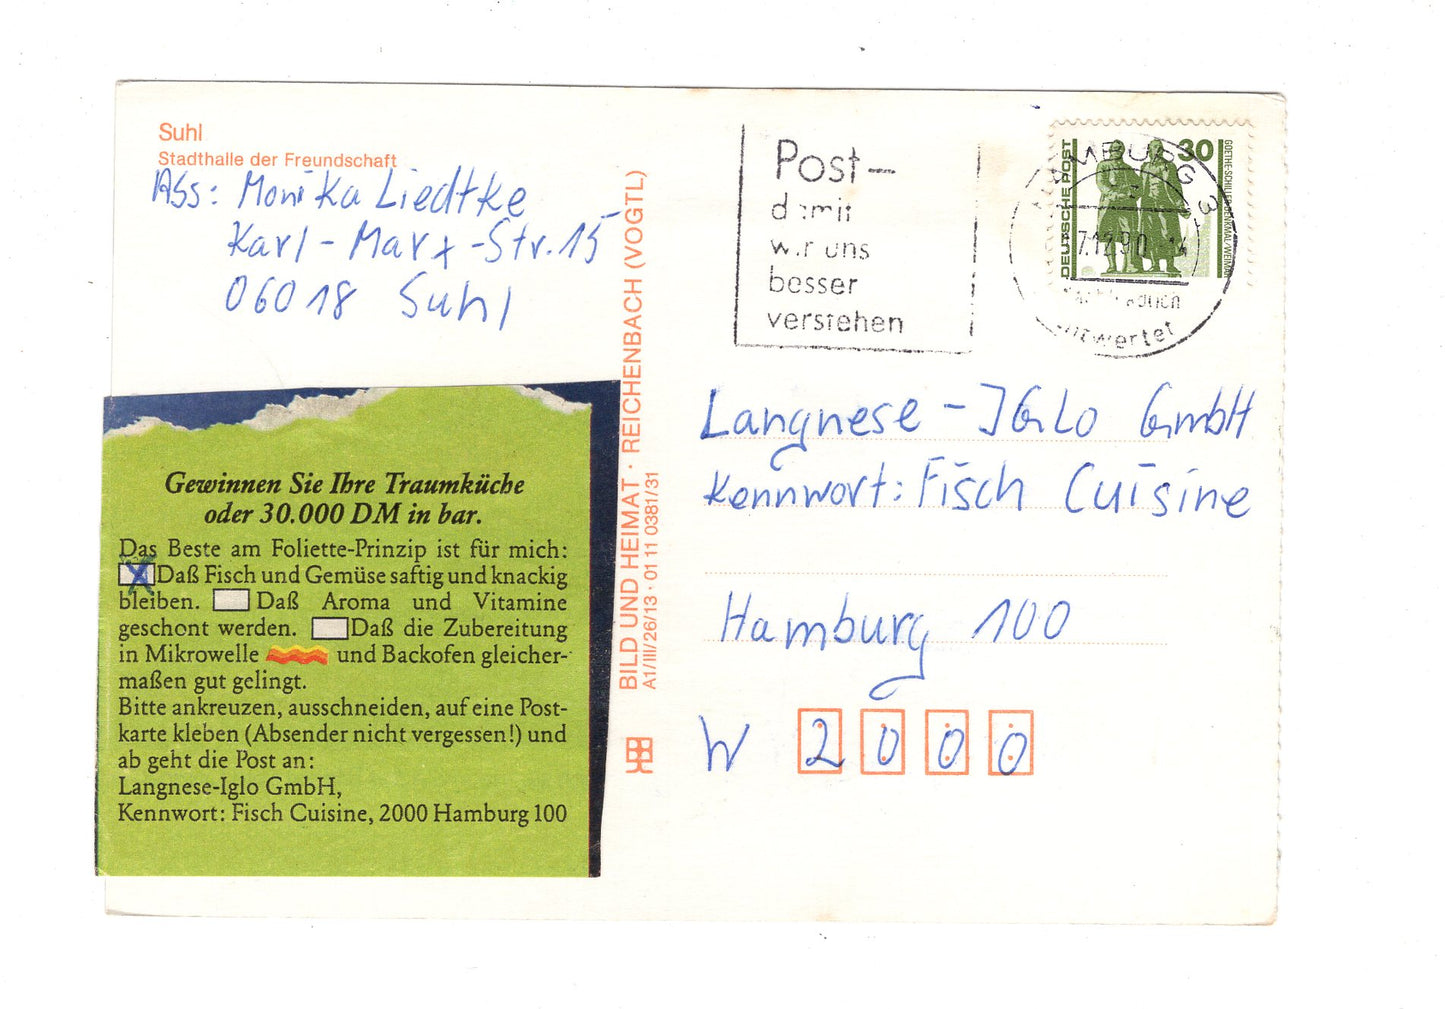 Suhl
Stadthalle der Freundschaft
Abs: Monika Liedtke
Karl-Marx-Str. 15
06018 Suhl
Gewinnen Sie Ihre Traumküche
oder 30.000 DM in bar.
Das Beste am Foliette-Prinzip ist für mich:
Daß Fisch und Gemüse saftig und knackig
bleiben. Daß Aroma und Vitamine
geschont werden. Daß die Zubereitung
in Mikrowelle und Backofen gleicher-
maßen gut gelingt.
Bitte ankreuzen, ausschneiden, auf eine Post-
karte kleben (Absender nicht vergessen!) und
ab geht die Post an:
Langnese-Iglo GmbH,
Kennwort: Fisch Cuisine, 2000 Hamburg 100
BILD UND HEIMAT · REICHENBACH (VOGTL)
A1/III/26/13 · 01 11 0381/31
Post-
damit
wir uns
besser
verstehen
DEUTSCHE POST
30
GOETHE-SCHILLER-DENKMAL/WEIMAR
HAMBURG
7.12.90
entwertet
Langnese-IGLO GmbH
Kennwort: Fisch Cuisine
Hamburg 100
W 2000